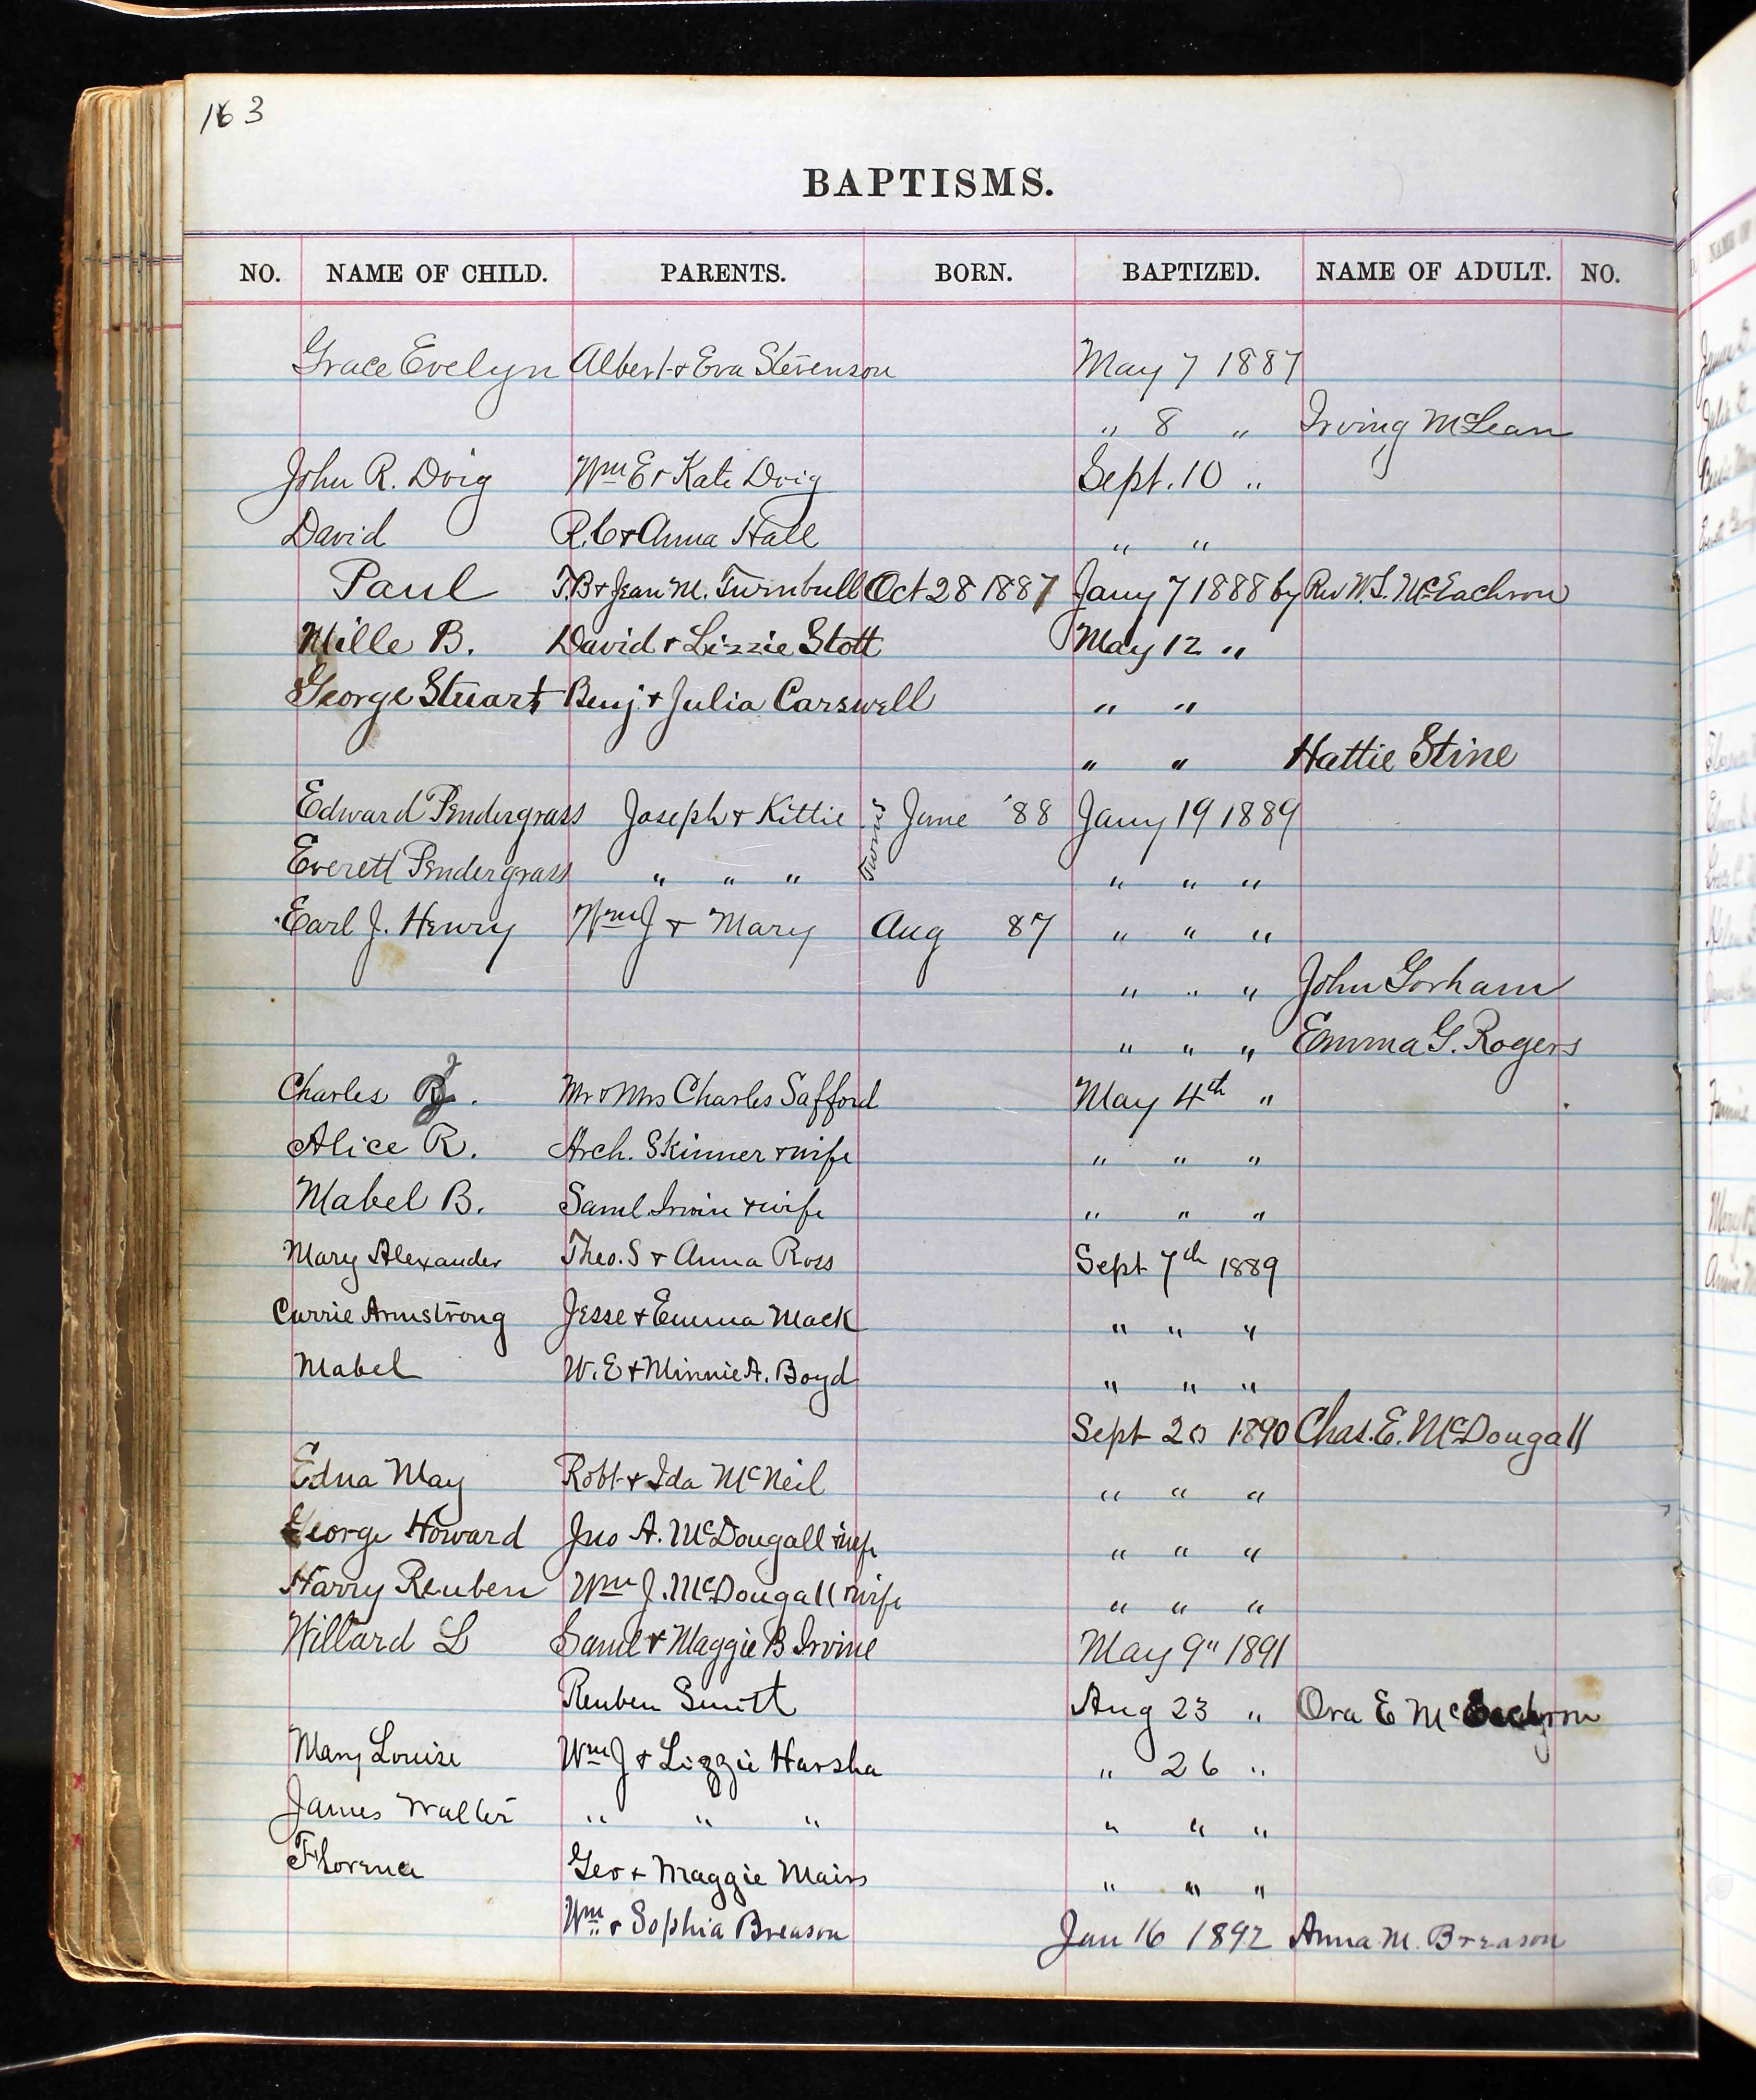 163
BAPTISMS.
NO. NAME OF CHILD. PARENTS. BORN. BAPTIZED. NAME OF ADULT. NO.
Grace Evelyn Albert + Eva Stevenson May 7 1887
" 8 " Irving McLean
John R. Doig Wm E + Kate Doig Sept. 10 "
David R. C + Anna Hall " "
Paul T. B + Jean M. Turnbull Oct 28 1887 Jany 7 1888 by Rev W. S. McEachron
Mille B. David + Lizzie Stott May 12 "
George Stuart Benj + Julia Carswell " "
" " Hattie Stine
Edward Pendergrass Joseph + Kittie Twins June '88 Jany 19 1889
Everett Pendergrass " " " " " "
Earl J. Henry Wm J + Mary Aug 87 " " "
" " " John Gorham
" " " Emma G. Rogers
Charles J. Mr + Mrs Charles Safford May 4th "
Alice R. Arch. Skinner + wife " " "
Mabel B. Saml Irwin + wife " " "
Mary Alexander Theo. S + Anna Ross Sept 7th 1889
Carrie Armstrong Jesse + Emma Mack " " "
Mabel W. E + Minnie A. Boyd " " "
Sept 20 1890 Chas. E. McDougall
Edna May Robt + Ida McNeil " " "
George Howard Jno A. McDougall + wife " " "
Harry Reuben Wm J. McDougall + wife " " "
Willard L Saml + Maggie B Irvine May 9" 1891
Reuben Smitt Aug 23 " Ora E McEachron
Mary Louise Wm J + Lizzie Harsha " 26 "
James Walter " " " " " "
Florence Geo + Maggie Mairs " " "
Wm + Sophia Breason Jan 16 1892 Anna M. Breason